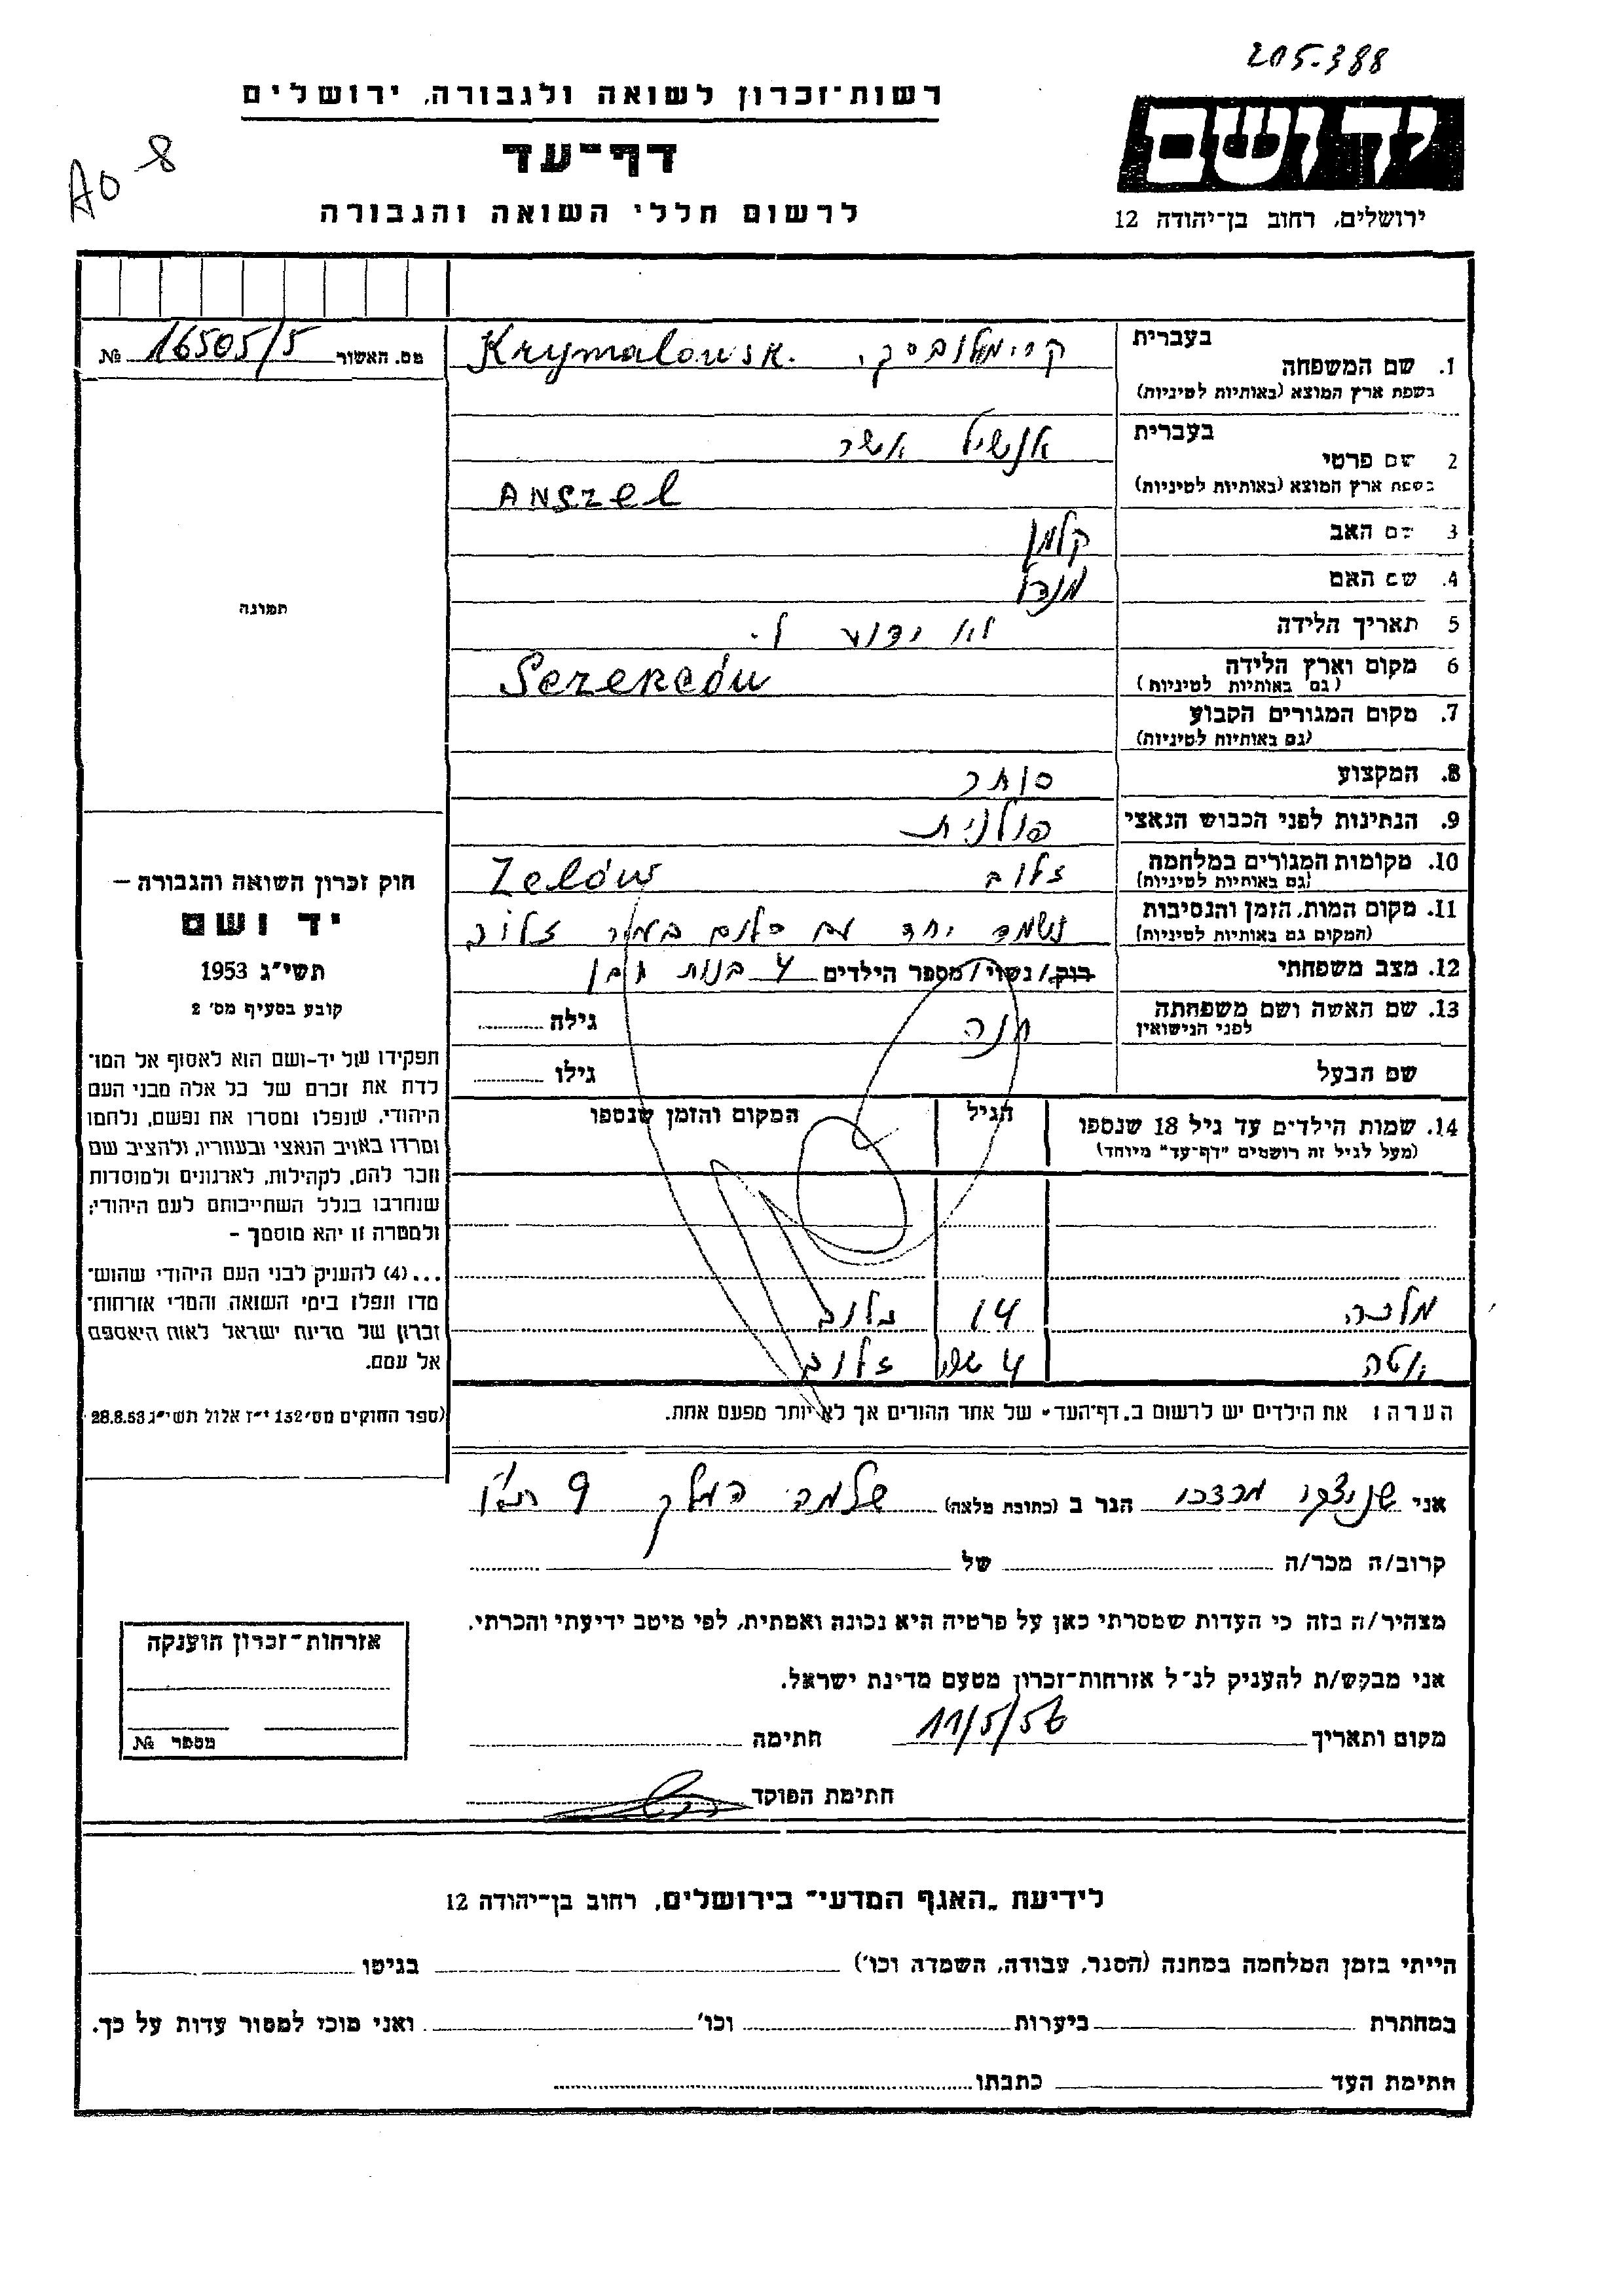 205.388
רשות־זכרון לשואה ולגבורה, ירושלים
יד ושם
דף־עד
AO-8
לרשום חללי השואה והגבורה
ירושלים, רחוב בן־יהודה 12
מס. האשור 16505/5 №
בעברית
1. שם המשפחה קרימלובסקי Krymalowsk.
בשפת ארץ המוצא (באותיות לטיניות)
בעברית אנשיל אשר
2 שם פרטי
בשפת ארץ המוצא (באותיות לטיניות) ANSZEL
3 שם האב קלמן
4. שם האם
5 תאריך הלידה לא ידוע לי
6 מקום וארץ הלידה
(גם באותיות לטיניות)
7. מקום המגורים הקבוע
(גם באותיות לטיניות)
8. המקצוע סוחר
9. הנתינות לפני הכבוש הנאצי פולנית
10. מקומות המגורים במלחמה זלוב Zelów
(גם באותיות לטיניות)
11. מקום המות, הזמן והנסיבות
(המקום גם באותיות לטיניות) נשמד יחד עם כולם בעיר זלוב
12. מצב משפחתי רוק/נשוי/מספר הילדים 4 בנות ובן
13. שם האשה ושם משפחתה
לפני הנישואין חנה גילה
שם הבעל גילו
14. שמות הילדים עד גיל 18 שנספו הגיל המקום והזמן שנספו
(מעל לגיל זה רושמים "דף־עד" מיוחד)
מלכה 14 זלוב
4 זלוב
הערה: את הילדים יש לרשום ב„דף־העד" של אחד ההורים אך לא יותר מפעם אחת.
תמונה
חוק זכרון השואה והגבורה —
יד ושם
תשי"ג 1953
קובע בסעיף מס' 2
תפקידו של יד-ושם הוא לאסוף אל המו־
לדת את זכרם של כל אלה מבני העם
היהודי, שנפלו ומסרו את נפשם, נלחמו
ומרדו באויב הנאצי ובעוזריו, ולהציב שם
וזכר להם, לקהילות, לארגונים ולמוסדות
שנחרבו בגלל השתייכותם לעם היהודי;
ולמטרה זו יהא מוסמך —
...(4) להעניק לבני העם היהודי שהוש־
מדו ונפלו בימי השואה והמרי אזרחות־
זכרון של מדינת ישראל לאות היאספם
אל עמם.
(ספר החוקים מס' 132 י"ז אלול תשי"ג 28.8.53
אני מרדכי הגר ב (כתובת מלאה) שלמה המלך 9 ת"א
קרוב/ה מכר/ה של
מצהיר/ה בזה כי העדות שמסרתי כאן על פרטיה היא נכונה ואמתית, לפי מיטב ידיעתי והכרתי.
אני מבקש/ת להעניק לנ"ל אזרחות־זכרון מטעם מדינת ישראל.
מקום ותאריך 11/5/56 חתימה
חתימת הפוקד
אזרחות־זכרון הוענקה
מספר №
לידיעת „האגף המדעי" בירושלים, רחוב בן־יהודה 12
הייתי בזמן המלחמה במחנה (הסגר, עבודה, השמדה וכו') בגיטו
במחתרת ביערות וכו' ואני מוכן למסור עדות על כך.
חתימת העד כתבתו